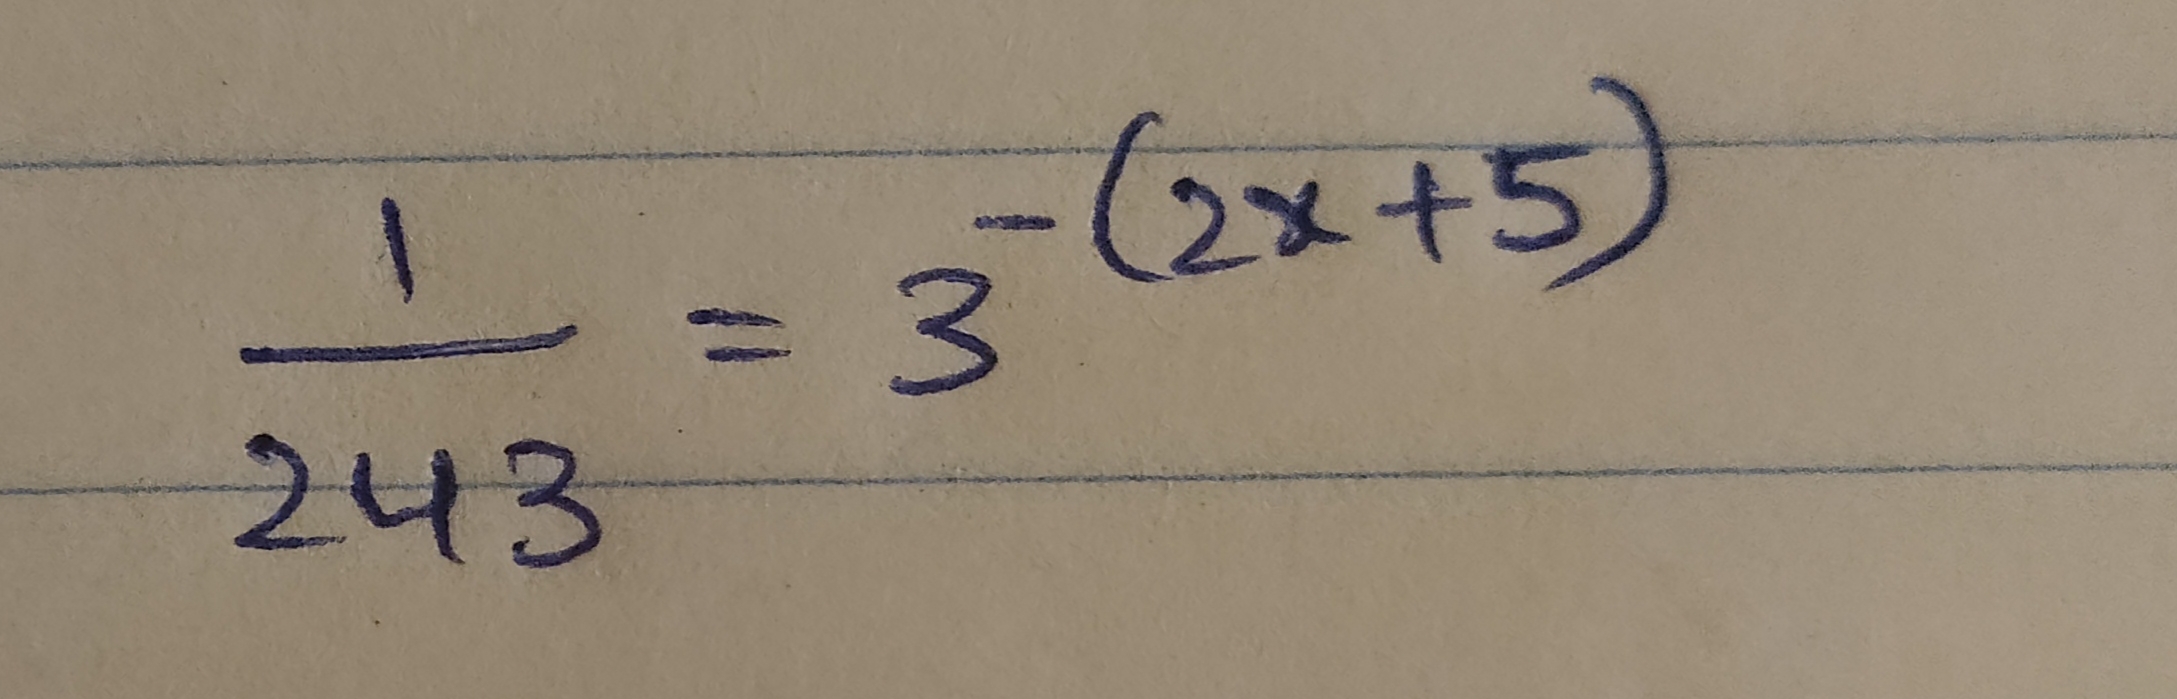 1/243 = 3^-(2x+5)